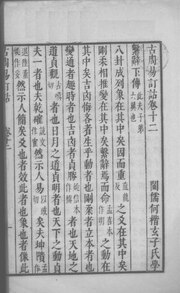 古周易訂詁卷十二
閩儒何楷玄子氏學
繫辭下傳
八卦成列象在其中矣因而重之爻在其中矣
剛柔相推變在其中矣繫辭焉而命之動在
其中矣吉凶悔吝者生乎動者也剛柔者立本者也
變通者趣時者也吉凶者貞勝者也天地之
道貞觀者也日月之道貞明者也天下之動貞
夫一者也夫乾確然示人易矣夫坤隤
然示人簡矣爻也者效此者也象也者像此
古周易訂詁
卷十二